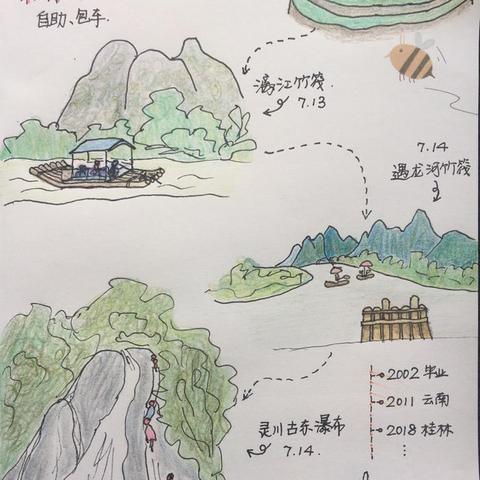 自助、包车.
漓江竹筏.
7.13
7.14
遇龙河竹筏
2002 毕业
2011 云南
2018 桂林
⋮
灵川古东瀑布
7.14.